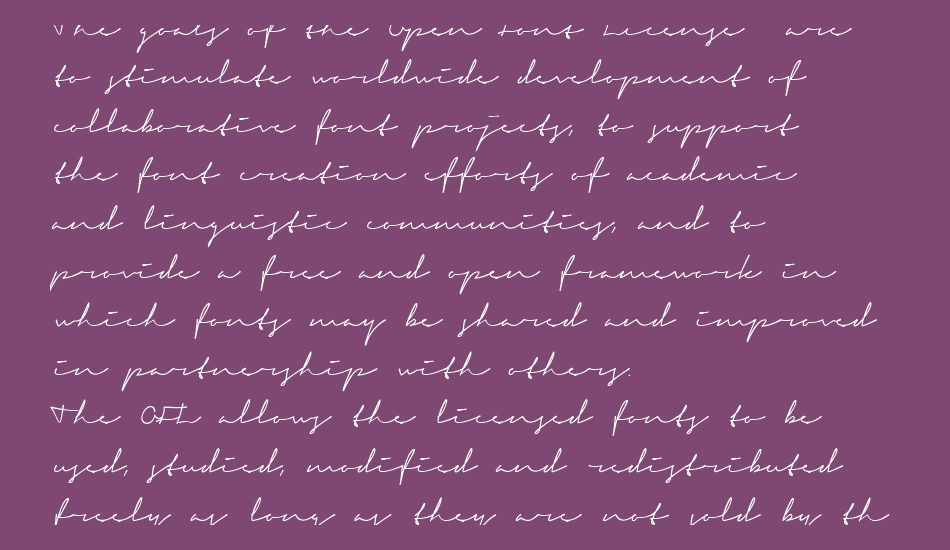 The goals of the Open Font License are
to stimulate worldwide development of
collaborative font projects, to support
the font creation efforts of academic
and linguistic communities, and to
provide a free and open framework in
which fonts may be shared and improved
in partnership with others.
The OFL allows the licensed fonts to be
used, studied, modified and redistributed
freely as long as they are not sold by th